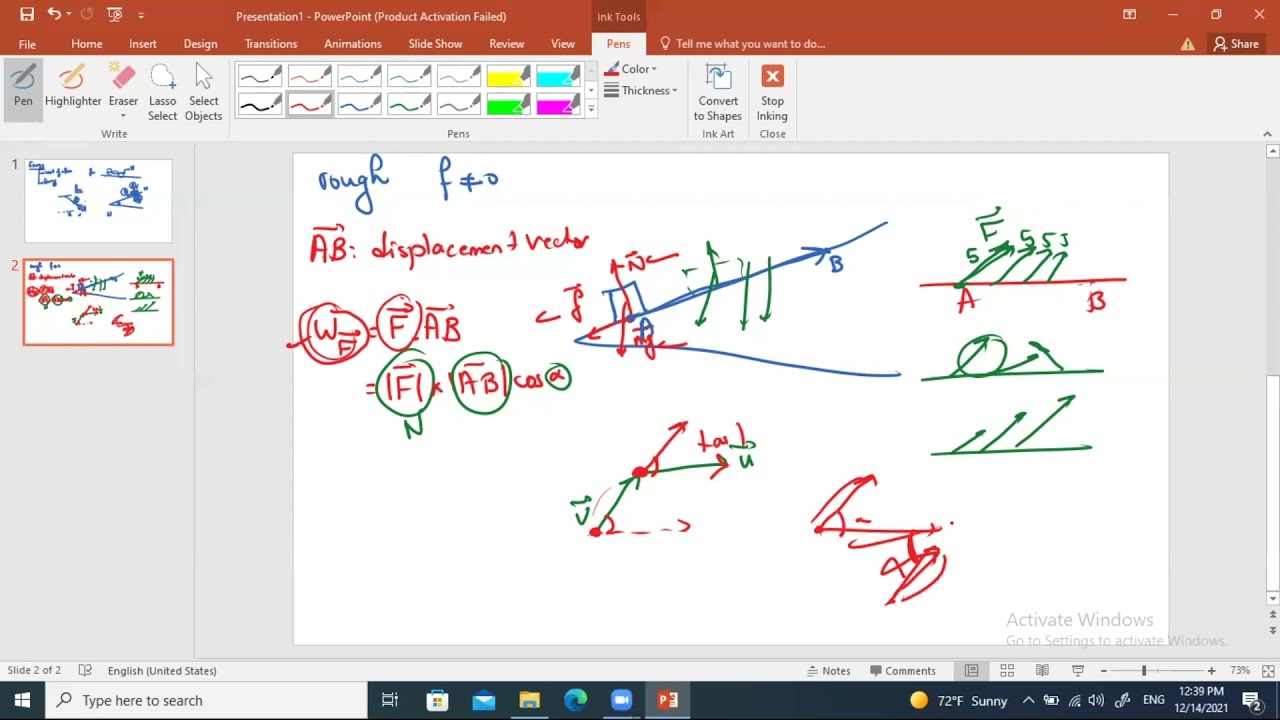 Presentation1 - PowerPoint (Product Activation Failed)
Ink Tools
File Home Insert Design Transitions Animations Slide Show Review View Pens Tell me what you want to do... Share
Pen Highlighter Eraser Lasso Select Select Objects
Color
Thickness
Convert to Shapes
Stop Inking
Write
Pens
Ink Art
Close
1
2
rough f≠0
AB: displacement vector
W F = F . AB
= |F| × |AB| cos α
N
N
f
A
B
mg
F
5 5 5 5
A B
V
u
α
Activate Windows
Go to Settings to activate Windows.
Slide 2 of 2 English (United States) Notes Comments 73%
Type here to search
72°F Sunny
ENG
12:39 PM
12/14/2021
2